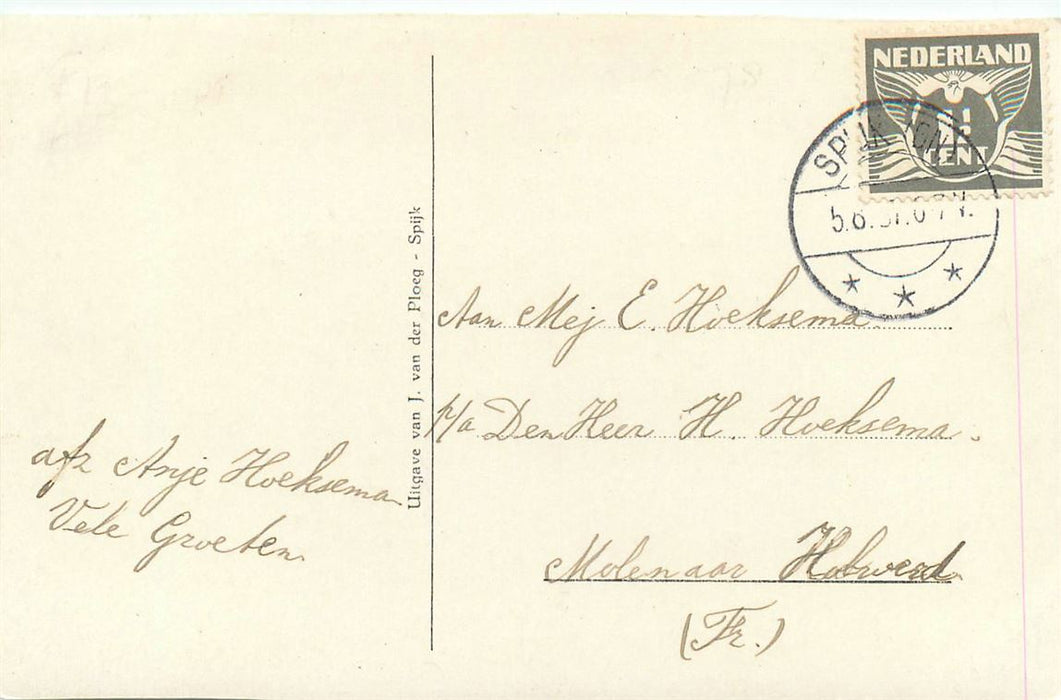 NEDERLAND
1½
CENT
SPIJK (GN.)
5.8.
Uitgave van J. van der Ploeg - Spijk
Aan Mej E. Hoeksema.
p/a Den Heer H. Hoeksema.
Molenaar Holwerd
(Fr.)
afz Anje Hoeksema
Vele Groeten